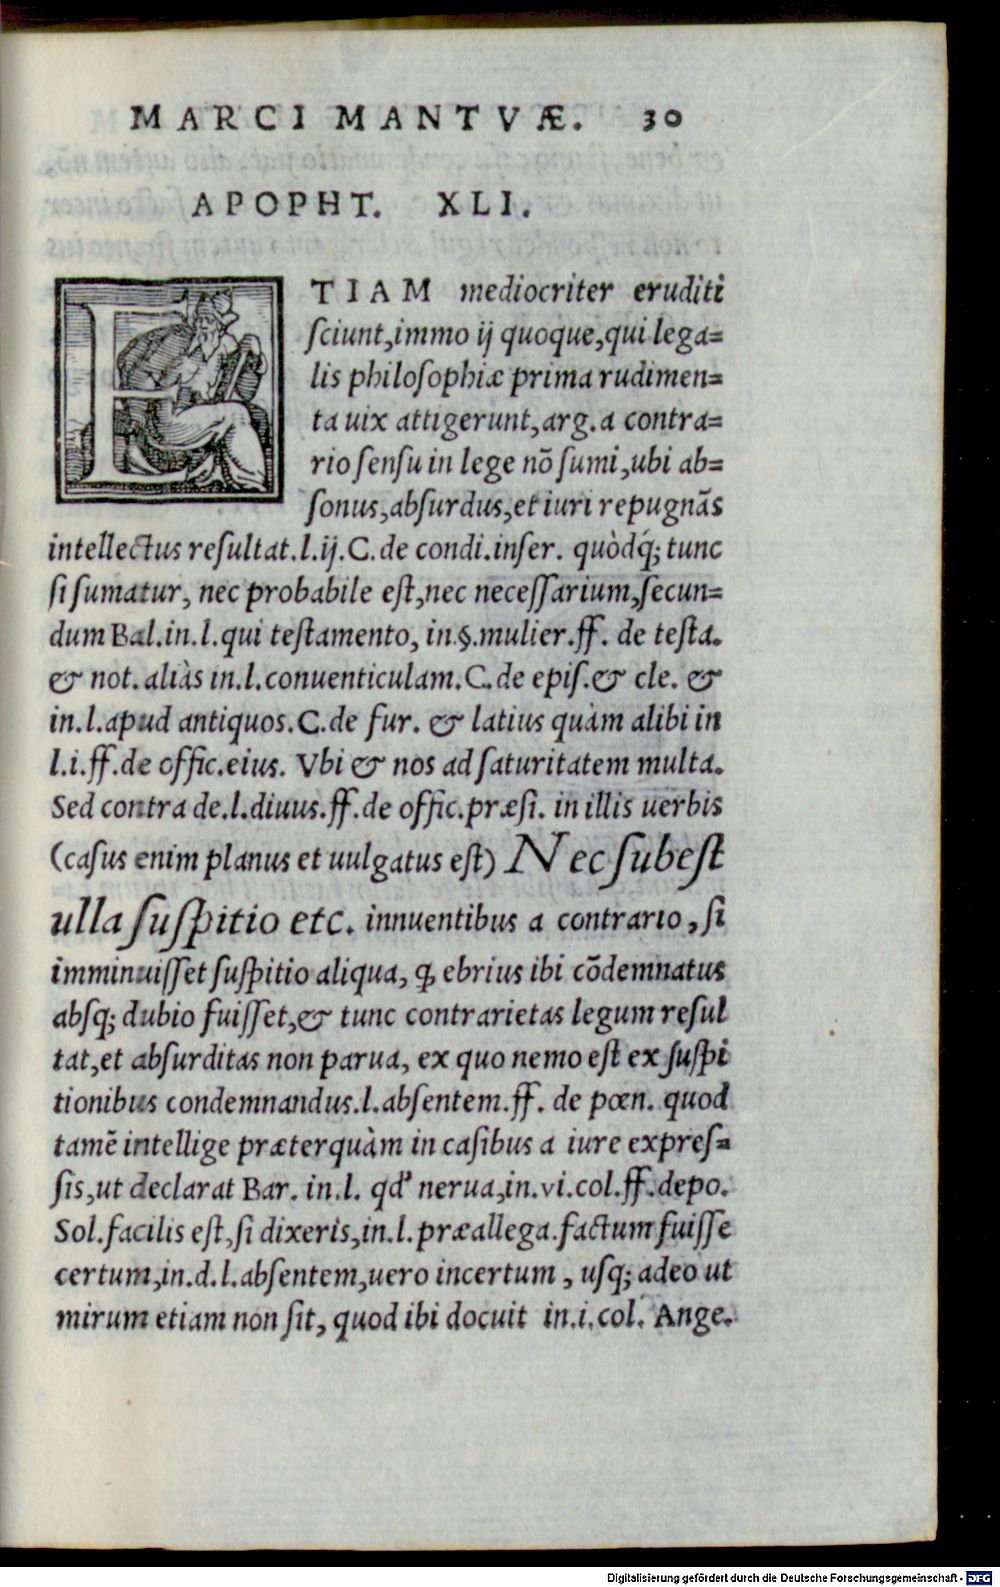 MARCI MANTVÆ. 30
APOPHT. XLI.
ETIAM mediocriter eruditi
ſciunt,immo ij quoque,qui lega=
lis philoſophiæ prima rudimen=
ta uix attigerunt,arg.a contra=
rio ſenſu in lege nõ ſumi,ubi ab=
ſonus,abſurdus,et iuri repugnãs
intellectus reſultat.l.ij.C.de condi.inſer. quòdq́; tunc
ſi ſumatur, nec probabile eſt,nec neceſſarium,ſecun=
dum Bal.in.l.qui teſtamento, in.§.mulier.ff. de teſta.
& not. aliàs in.l.conuenticulam.C.de epiſ.& cle. &
in.l.apud antiquos.C.de fur. & latius quàm alibi in
l.i.ff.de offic.eius. Vbi & nos ad ſaturitatem multa.
Sed contra de.l.diuus.ff.de offic.præſi. in illis uerbis
(caſus enim planus et uulgatus eſt) Nec ſubeſt
ulla ſuſpitio etc. innuentibus a contrario, ſi
imminuiſſet ſuſpitio aliqua, ꝙ ebrius ibi cõdemnatus
abſq; dubio fuiſſet,& tunc contrarietas legum reſul
tat,et abſurditas non parua, ex quo nemo eſt ex ſuſpi
tionibus condemnandus.l.abſentem.ff. de pœn. quod
tamẽ intellige præterquàm in caſibus a iure expreſ=
ſis,ut declarat Bar. in.l. qd' nerua,in.vi.col.ff.depo.
Sol.facilis eſt,ſi dixeris,in.l.præallega.factum fuiſſe
certum,in.d.l.abſentem,uero incertum, uſq; adeo ut
mirum etiam non ſit, quod ibi docuit in.i.col. Ange.
Digitalisierung gefördert durch die Deutsche Forschungsgemeinschaft - DFG